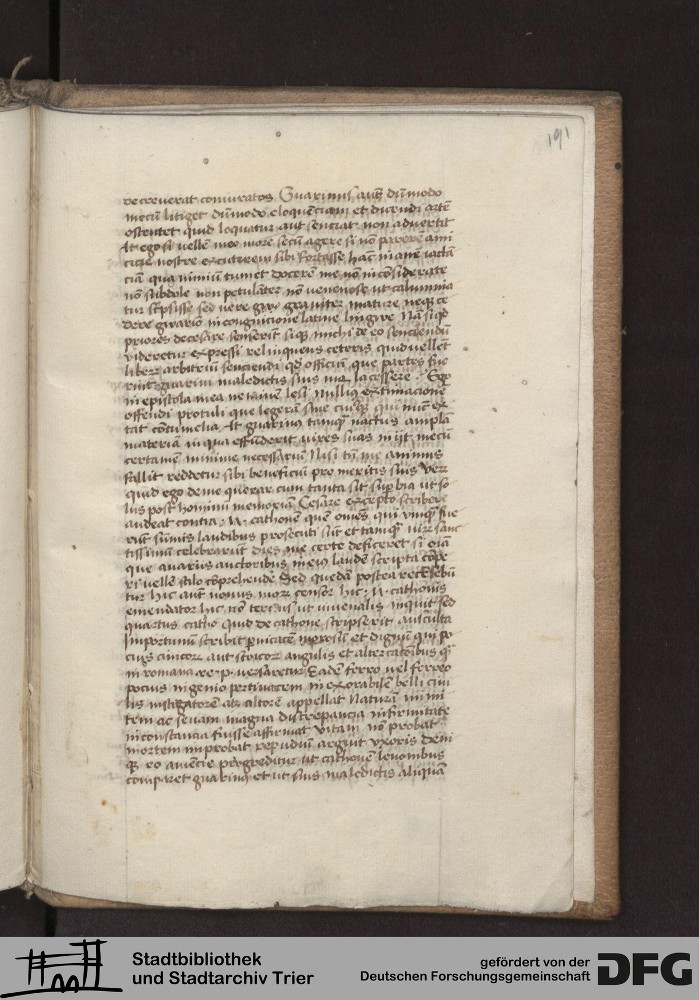 191
decreverat coniuratos Guarinus aut dũmodo
mecũ litiget dũmodo eloquenciam et dicendi artẽ
ostentet quid loquatur aut senciat non advertit
At ego si vellẽ meo more secũ agere si nõ parcerẽ ami
cicie nostre excuterem sibi fortasse hãc inanẽ iactã
ciam qua nimiũ tumet docerem me nõ inconsiderate
nõ stibdole non petulãter nõ venenose ut calumnia
tur scripsisse sed vere graviter mature neqz ce
dere guarino in cognicione latine lingwe Nã siqd
priores decesare senserĩt siqz michi de eo senciendũ
videretur expressi relinquens ceteris quid vellent
liberũ arbitriũ senciendi qd officiũ que partes fue
rint guarini maledictis suis me lacessere Ego
in epistola mea neminẽ lesi Nullius extimacionẽ
offendi protuli que legerã sine cuiusqz qui nunc ex
tat contumelia At guarinus tamqz nactus amplã
materiã in qua effuderit vires suas iniit mecũ
certamen minime necessariũ Nisi tñ me animus
fallit reddetur sibi beneficiũ pro meritis suis Veru
quid ego de me querar cum tanta sit superbia ut so
lus post hominũ memoriam Cesare excepto scribere
audeat contra M cathonẽ quẽ omẽs qui umqz fue
rũt sũmis laudibus prosecuti sũt et tamqz virũ sanc
tissimũ celebrarũt dies me certe deficeret si ea
que a variis auctoribus in eius laudẽ scripta compe
ri vellẽ stilo comprehendẽ Sed quedã postea recensebũ
tur hic aut nouus morũ censor hic M cathonis
emendator hic nõ tercius ut iuvenalis inquit sed
quartus catho quid de cathone scripserit ausculta
Importunũ scribit pervicacẽ morosũ et dignũ qui po
cius cinicorũ aut stoicorũ angulis et altercationibus qz
in romana re p versaretur Eadẽ ferro vel ferreo
pocius ingenio pertinacem inexorabilẽ belli civi
lis instigatorẽ atqz altorẽ appellat Naturã inmi
tem ac sevam magna discrepancia infirmitate
inconstancia fuisse affirmat vitam nõ probat
mortem improbat repudiũ arguit uxoris Deni
qz eo amencie progreditur ut cathonẽ lenonibus
comparet guarinus et ut suis maledictis aliquã
Stadtbibliothek
und Stadtarchiv Trier
gefördert von der
Deutschen Forschungsgemeinschaft
DFG